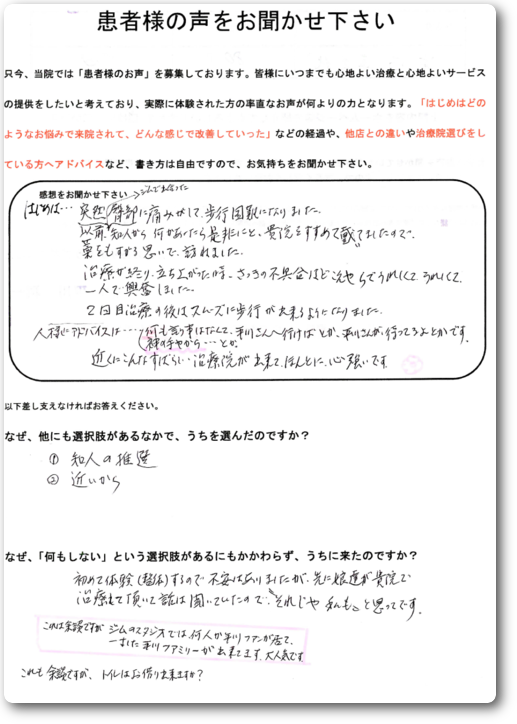 患者様の声をお聞かせ下さい
只今、当院では「患者様のお声」を募集しております。皆様にいつまでも心地よい治療と心地よいサービス
の提供をしたいと考えており、実際に体験された方の率直なお声が何よりの力となります。「はじめはどの
ようなお悩みで来院されて、どんな感じで改善していった」などの経過や、他店との違いや治療院選びをし
ている方へアドバイスなど、書き方は自由ですので、お気持ちをお聞かせ下さい。
感想をお聞かせ下さい
はじめは… 突然臀部に痛みがして、歩行困難になりました。
以前、知人から何かあったら是非にと、貴院をすすめて戴いてましたので
藁をもすがる思いで、訪れました。
治療が終り、立ち上がった時、さっきの不具合はどこえやらでうれしくて、うれしくて、
一人で興奮しました。
2回目治療の後はスムーズに歩行が出来るようになりました。
人様にアドバイスは……何も言う事はなくて、平川さんへ行けばとか、平川さんが行ってるよとかです。
神の手やから…とか。
近くにこんなすばらしい治療院が出来て、ほんとに、心強いです。
以下差し支えなければお答えください。
なぜ、他にも選択肢があるなかで、うちを選んだのですか？
① 知人の推選
② 近いから
なぜ、「何もしない」という選択肢があるにもかかわらず、うちに来たのですか？
初めて体験(整体)するので不安はありましたが、先に娘達が貴院で
治療をして頂いて話は聞いていたので、“それじゃ私も”と思ってです。
これは余談ですが ジムのスタジオでは、何人か平川ファンが居て、
ました平川ファミリーが出来てます。大人気です。
これも余談ですが、トイレはお借り出来ますか？